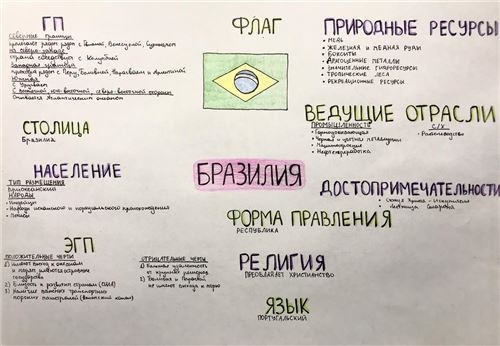 ГП
Северные границы
проходят рядом с Гвианой, Венесуэлой, Суринамом
на северо-западе
страна соседствует с Колумбией
Западная граница
проходит рядом с Перу, Боливией, Парагваем и Аргентиной
Южная
с Уругваем
С восточной, юго-восточной, северо-восточной стороны
омывается Атлантическим океаном
СТОЛИЦА
Бразилиа
НАСЕЛЕНИЕ
ТИП РАЗМЕЩЕНИЯ
Приокеанский
НАРОДЫ
Индейцы
Народы испанского и португальского происхождения
ЭГП
ПОЛОЖИТЕЛЬНЫЕ ЧЕРТЫ
1) имеет выход к океанам
и морям
государства
2) Близость к развитым странам (США)
3) Наличие важных транспортных
морских магистралей (Панамский канал)
ОТРИЦАТЕЛЬНЫЕ ЧЕРТЫ
1) Большая удаленность
от крупных регионов
2) Боливия и Парагвай
не имеют выхода к морю
ФЛАГ
БРАЗИЛИЯ
ФОРМА ПРАВЛЕНИЯ
РЕСПУБЛИКА
РЕЛИГИЯ
ПРЕОБЛАДАЕТ ХРИСТИАНСТВО
ЯЗЫК
ПОРТУГАЛЬСКИЙ
ПРИРОДНЫЕ РЕСУРСЫ
МЕДЬ
ЖЕЛЕЗНАЯ И МЕДНАЯ РУДЫ
БОКСИТЫ
ДРАГОЦЕННЫЕ МЕТАЛЛЫ
ЗНАЧИТЕЛЬНЫЕ ГИДРОРЕСУРСЫ
ТРОПИЧЕСКИЕ ЛЕСА
РЕКРЕАЦИОННЫЕ РЕСУРСЫ
ВЕДУЩИЕ ОТРАСЛИ
ПРОМЫШЛЕННОСТЬ
Горнодобывающая
Черная и цветная металлургия
Машиностроение
Нефтепереработка
С/Х
Растениеводство
ДОСТОПРИМЕЧАТЕЛЬНОСТИ
Статуя Христа - Искупителя
Лестница Селарона